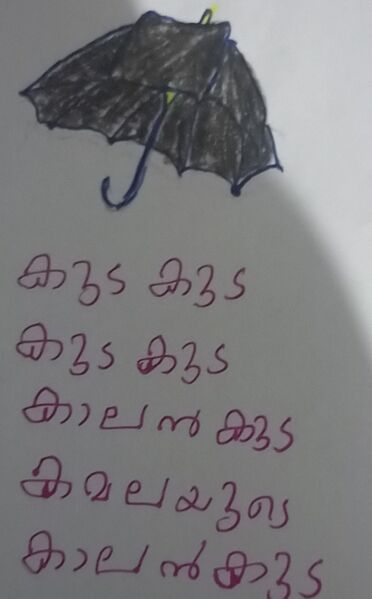 കുട കുട
കുട കുട
കാലൻ കുട
കവലയുടെ
കാലൻകുട